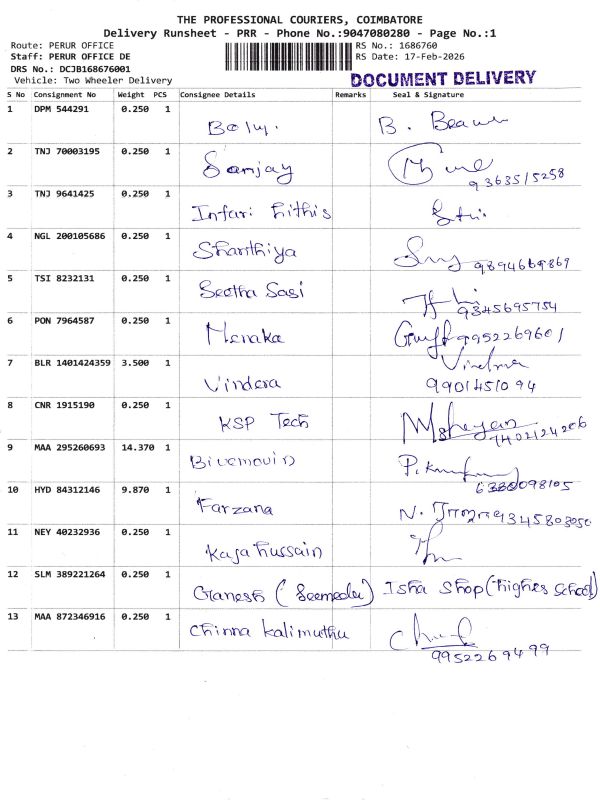 THE PROFESSIONAL COURIERS, COIMBATORE
Delivery Runsheet - PRR - Phone No.:9047080280 - Page No.:1
Route: PERUR OFFICE RS No.: 1686760
Staff: PERUR OFFICE DE RS Date: 17-Feb-2026
DRS No.: DCJB168676001
Vehicle: Two Wheeler Delivery DOCUMENT DELIVERY
S No Consignment No Weight PCS Consignee Details Remarks Seal & Signature
1 DPM 544291 0.250 1 B.
2 TNJ 70003195 0.250 1 Sanjay
9363515258
3 TNJ 9641425 0.250 1
4 NGL 200105686 0.250 1 Shanthiya 9894669869
5 TSI 8232131 0.250 1 Seetha Sasi 9345695754
6 PON 7964587 0.250 1 Menaka 9952269601
7 BLR 1401424359 3.500 1 Vindera
9901451094
8 CNR 1915190 0.250 1 KSP Tech
7402124206
9 MAA 295260693 14.370 1
10 HYD 84312146 9.870 1 Farzana N. 9345803050
11 NEY 40232936 0.250 1 Kaja hussain
12 SLM 389221264 0.250 1 Ganesh Isha Shop (higher School)
13 MAA 872346916 0.250 1 Chinna Kalimuthu
9952269499